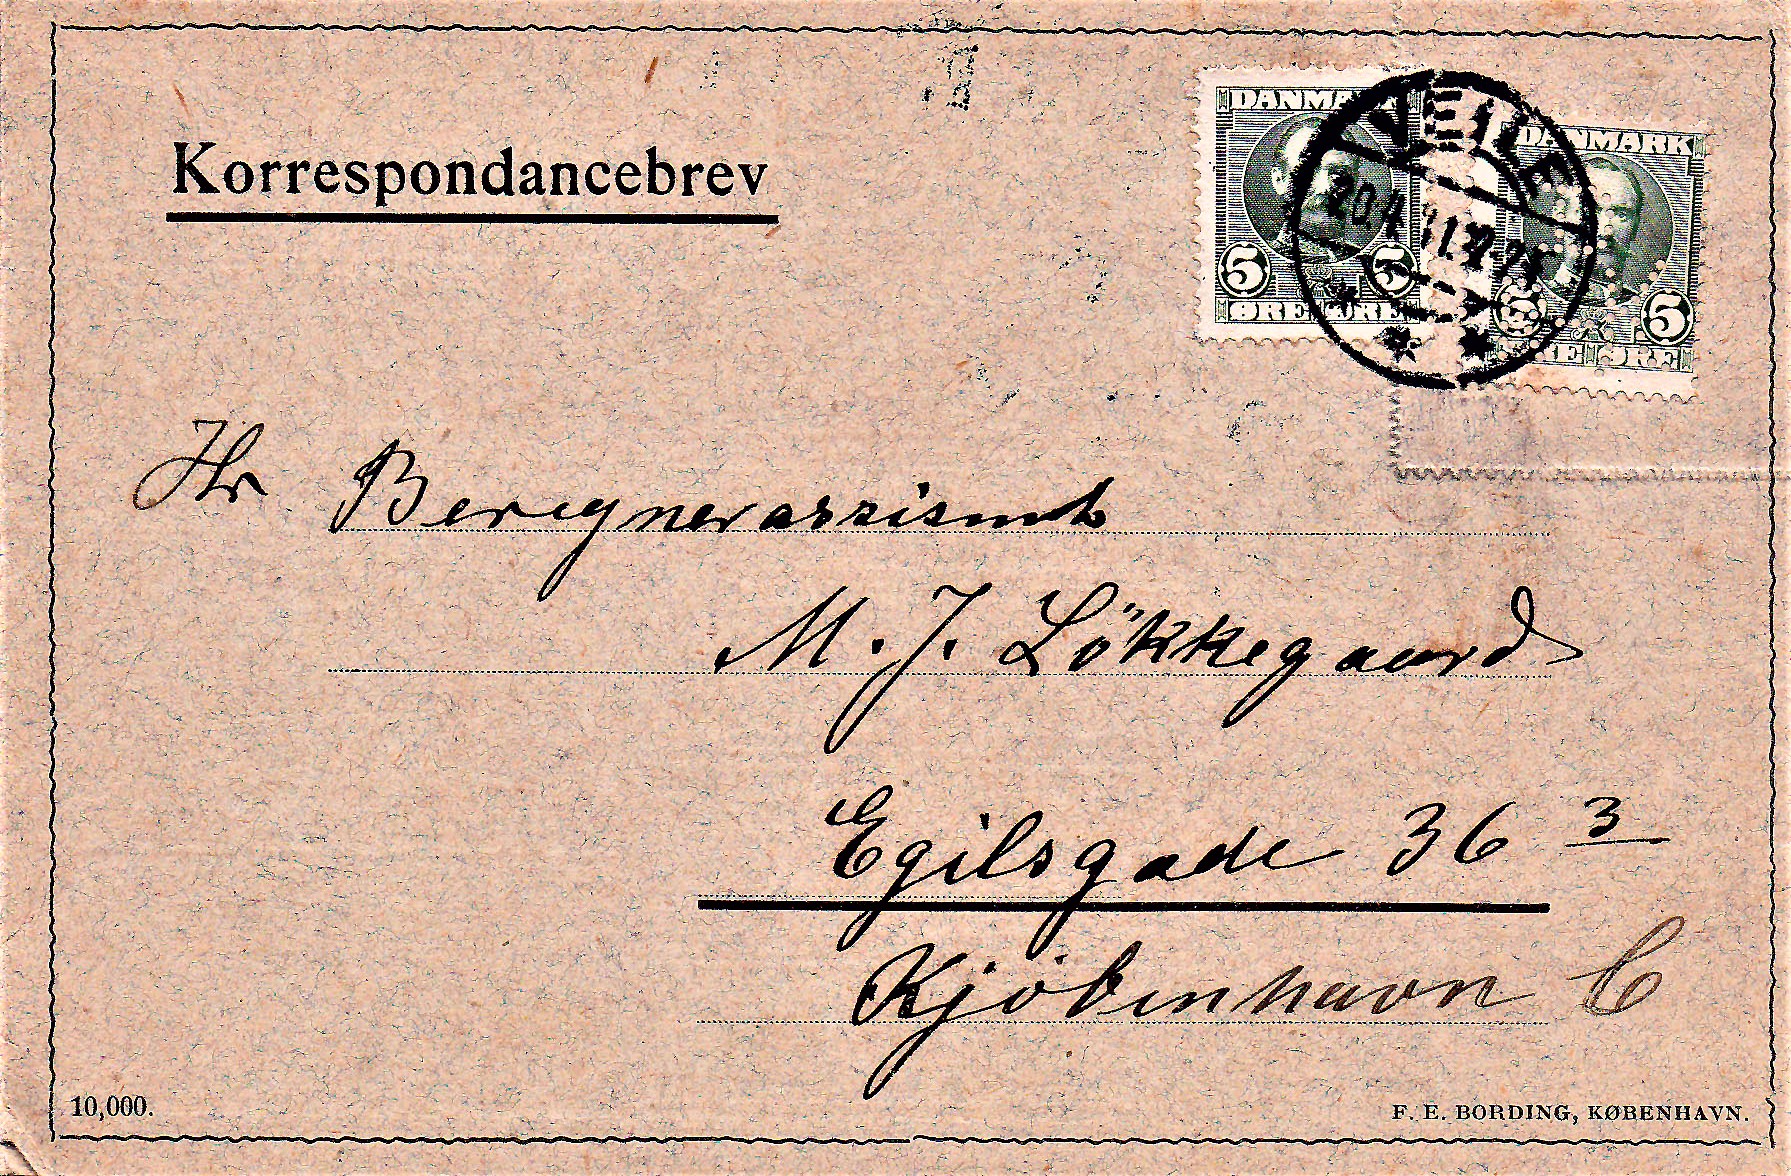 Korrespondancebrev
DANMARK
5 5
ØRE ØRE
DANMARK
5 5
ØRE ØRE
VEJLE
20.4.11.
Hr Beregnerassistent
M. J. Lökkegaard
Egilsgade 36 3
Kjöbenhavn C
10,000.
F. E. BORDING, KØBENHAVN.